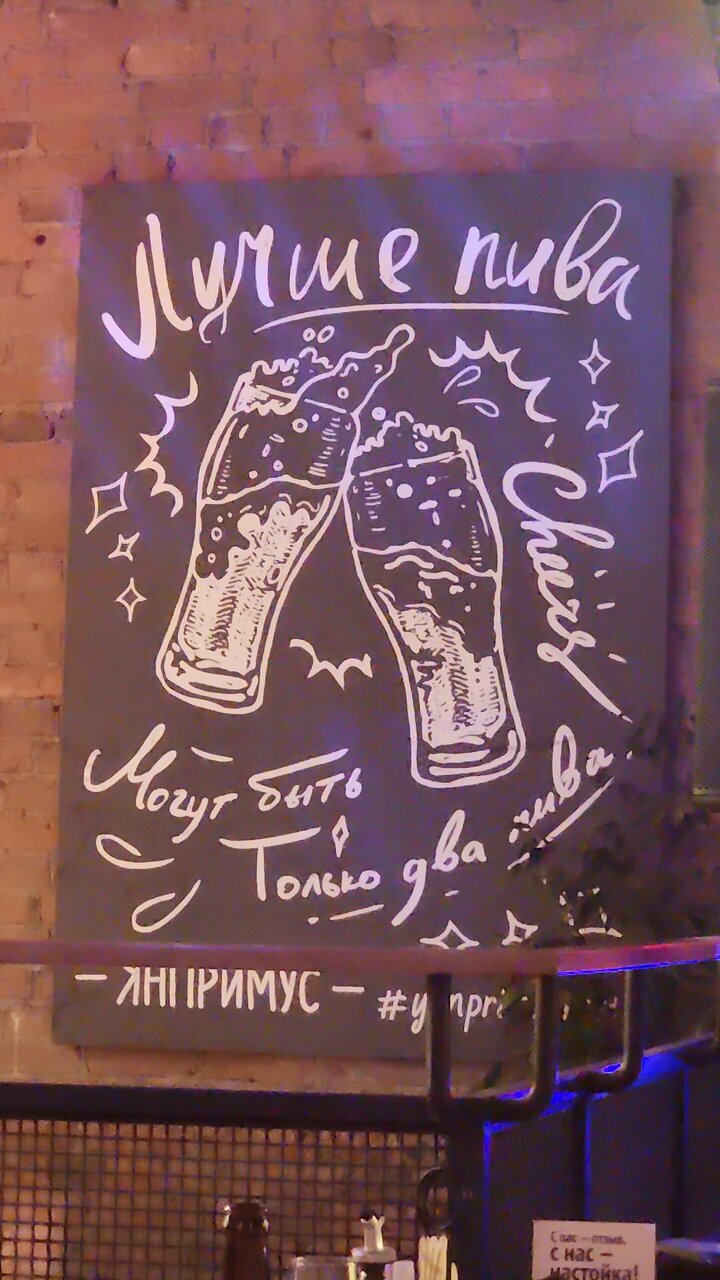 Лучше пива
Cheers
Могут быть
Только два пива
— ЯНПРИМУС —
С вас – отзыв,
с нас –
настойка!